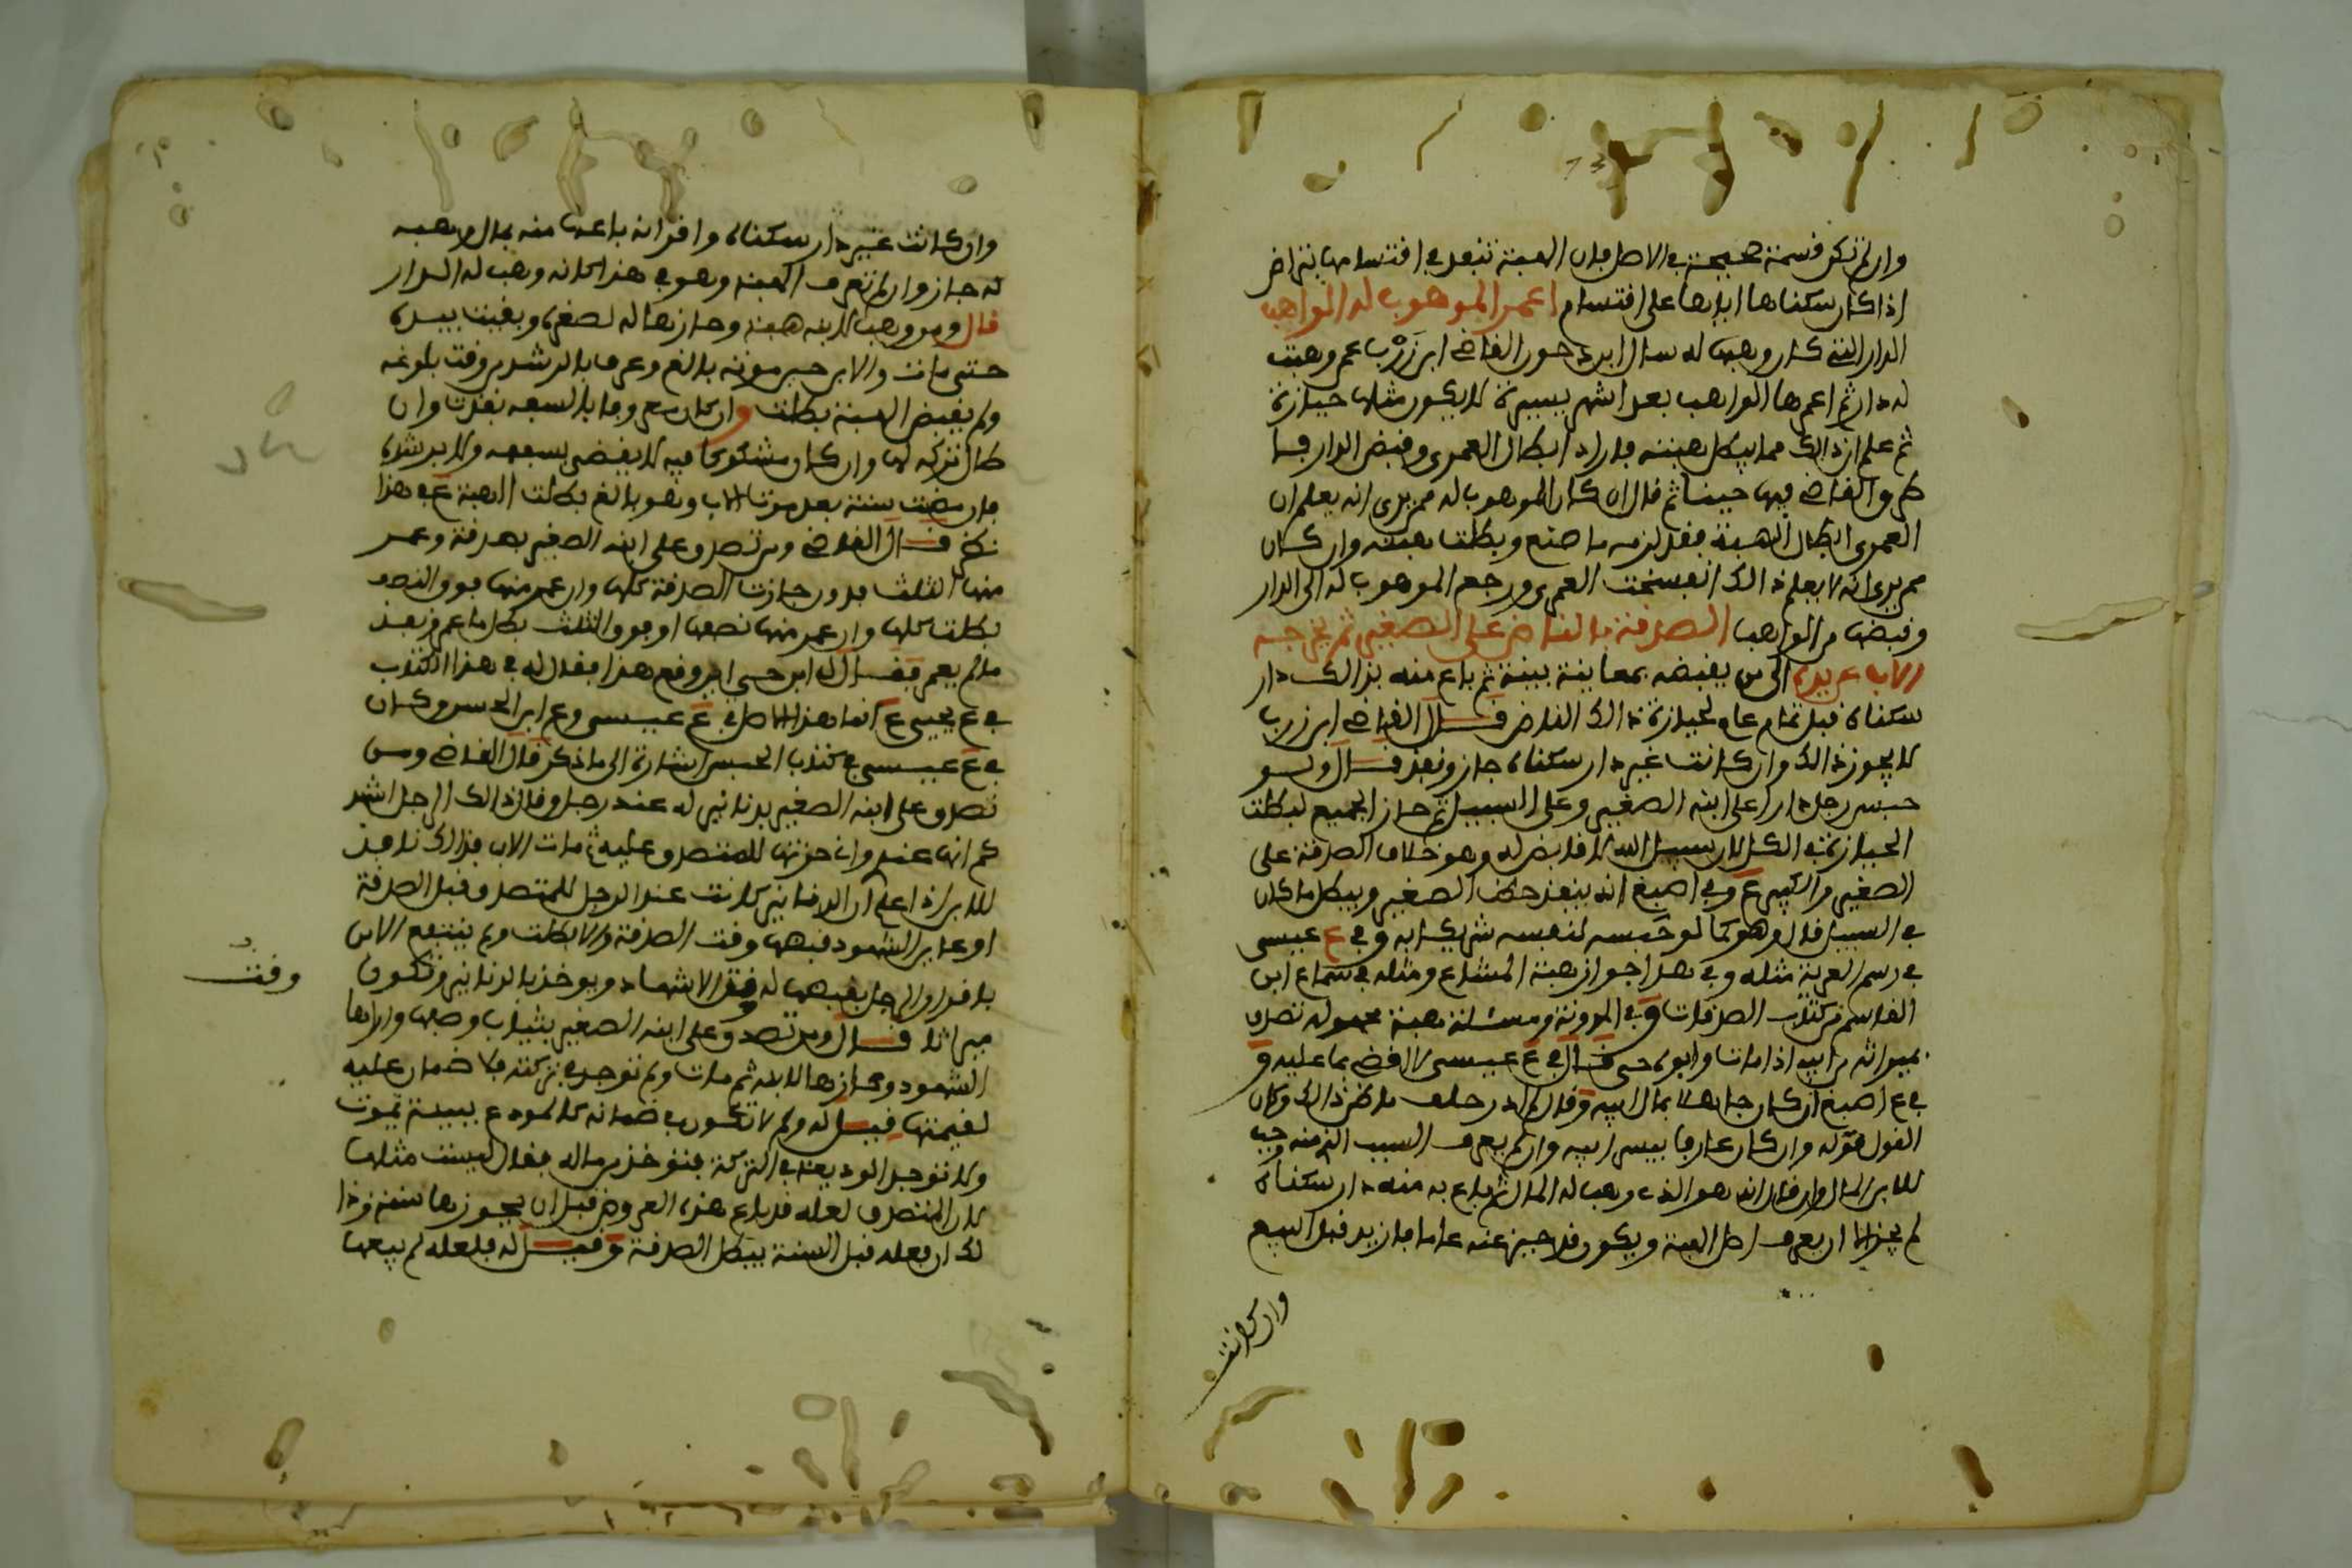 وان لم تكن قسمة صحيحة في الاصل فان الهبة تنفذ في اقتسامها بتراض
اذا كان سكناها ابانها على اقتسام اعمر الموهوب له الواهب
الدار التي كان وهبها له سال ابن دحون القاضي ابن زرب عمن وهبت
له دار ثم اعمرها الواهب بعد اشهر يسيرة لا يكون مثلها حيازة
ثم علم ان ذالك مما يبطل هبته فاراد ابطال العمرى وقبض الدار فا
طرق القاضي فيها حينا ثم قال ان كان الموهوب له ممن يرى انه يعلم ان
العمرى ابطال الهبة فقد لزمه ما صنع وبطلت هبته وان كان
ممن يرى انه لا يعلم ذالك انفسخت العمرى ورجع الموهوب له الى الدار
وقبضها من الواهب الصدقة بالناض على الصغير ثم يخرجه
الاب عن يده الى من يقبضه بمعاينة بينة ثم باع منه بذالك دار
سكناه قبل تمام عام لحيازة ذالك الناض قال القاضي ابن زرب
لا يجوز ذالك وان كانت غير دار سكناه جاز ونفذ قال ولو
حبس رجل دارا على ابنه الصغير وعلى السبيل ثم حاز الجميع لبطلت
الحيازة في الكل لان سبيل الله لا قابض له وهو خلاف الصدقة على
الصغير والكبير ع وفي اصبغ انه ينفذ حظ الصغير ويبطل ما كان
في السبيل قال وهو كما لو حبسه لنفسه شريكا به وفي ع عيسى
في رسم العرية مثله وفي هذا جواز هبة المشاع ومثله في سماع ابن
القاسم من كتاب الصدقات وفي المدونة ومسئلة هبة مجهولة تصدق
بميراثه من ابيه اذا مات وابوه حي قال في ع عيسى لا اقضي بما عليه و
في ع اصبغ ان كان جاهلا بمال ابيه وقال لم ادر حلف ما ظن ذالك وكان
القول قوله وان كان عارفا بيسر ابيه وان لم يعرف السبب الزمنه وجب
للابن المال وان قال انه هو الذي وهب له المال ثم باع به منه دار سكناه
لم يجز الا ان يعرف اصل الهبة ويكون قد حيز عنه عاما فازيد قبل البيع
وان كانت
وان كانت غير دار سكناه واقر انه باعها منه بمال وهبه
له جاز وان لم تعرف الهبة وهو في هذا كانه وهب له الدار
قال ومن وهب لابنه هبة وحازها له لصغره وبقيت بيده
حتى مات والابن حين موته بالغ وعرف بالرشد من وقت بلوغه
ولم يقبض الهبة بطلت وان كان معروفا بالسفه نفذت وان
طال تركه لها وان كان مشكوكا فيه لا يقضى بسفهه ولا برشده
فان مضت سنة بعد موت الاب وهو بالغ بطلت الهبة ع في هذا
نظر قال القاضي ومن تصدق على ابنه الصغير بصدقة وعمر
منها الثلث فدون جازت الصدقة كلها وان عمر منها فوق النصف
بطلت كلها وان عمر منها نصفها او فوق الثلث بطل ما عمر ونفذ
ما لم يعمر فقال له ابن حي اين وقع هذا فقال له في هذا الكتاب
في ع يحيى ع انما هذا الاصل في ع عيسى وع ابن الحسن وكان
في ع عيسى في كتاب الحبس اشارة الى ما ذكر قال القاضي ومن
تصدق على ابنه الصغير بدنانير له عند رجل وقال ذالك الرجل اشهد
كم انها عنده وان حزتها للمتصدق عليه ثم مات الاب فذالك نافذ
للابن اذا علم ان الدنانير كانت عند الرجل للمتصدق قبل الصدقة
او عاين الشهود قبضها وقت الصدقة والا بطلت ولم ينتفع الابن
باقرار الرجل بقبضها له وقت الاشهاد ويوخذ بالدنانير وتكون
ميراثا قال ومن تصدق على ابنه الصغير بثياب وصفها واراها
الشهود وحازها لابنه ثم مات ولم توجد في تركته فلا ضمان عليه
لقيمتها قيل له ولم لا تكون في ضمانه كالمودع ببينة يموت
ولا توجد الوديعة في التركة فتوخذ من ماله فقال ليست مثلها
لان المتصدق لعله قد باع هذه العروض قبل ان يحوزها سنة وذا
لك ان فعله قبل السنة يبطل الصدقة وقيل له فلعله لم يبعها
وقت